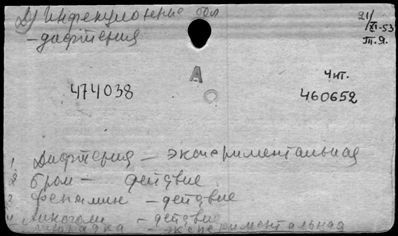 Д) Инфекционные бол
21/XI-53
– дифтерия
Т.Я.
А
Чит.
474038
460652
1. Дифтерия – экспериментальная
2 Бром – действие
3 Фенамин – действие
4 – действие
– экспериментальная